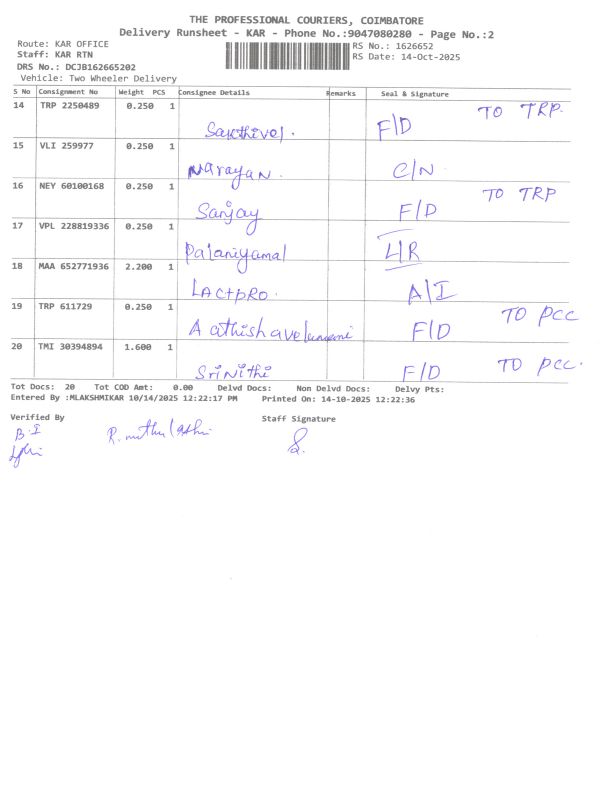 THE PROFESSIONAL COURIERS, COIMBATORE
Delivery Runsheet - KAR - Phone No.:9047080280 - Page No.:2
Route: KAR OFFICE RS No.: 1626652
Staff: KAR RTN RS Date: 14-Oct-2025
DRS No.: DCJB162665202
Vehicle: Two Wheeler Delivery
S No Consignment No Weight PCS Consignee Details Remarks Seal & Signature
14 TRP 2250489 0.250 1 TO TRP.
Sakthivel. F/D
15 VLI 259977 0.250 1
Narayan. C/N
16 NEY 60100168 0.250 1 TO TRP
Sanjay F/D
17 VPL 228819336 0.250 1
Palaniyamal L/R
18 MAA 652771936 2.200 1
LACTPRO. A/I
19 TRP 611729 0.250 1 TO PCC
F/D
20 TMI 30394894 1.600 1 TO PCC.
Srinithi F/D
Tot Docs: 20 Tot COD Amt: 0.00 Delvd Docs: Non Delvd Docs: Delvy Pts:
Entered By :MLAKSHMIKAR 10/14/2025 12:22:17 PM Printed On: 14-10-2025 12:22:36
Verified By Staff Signature
B.I